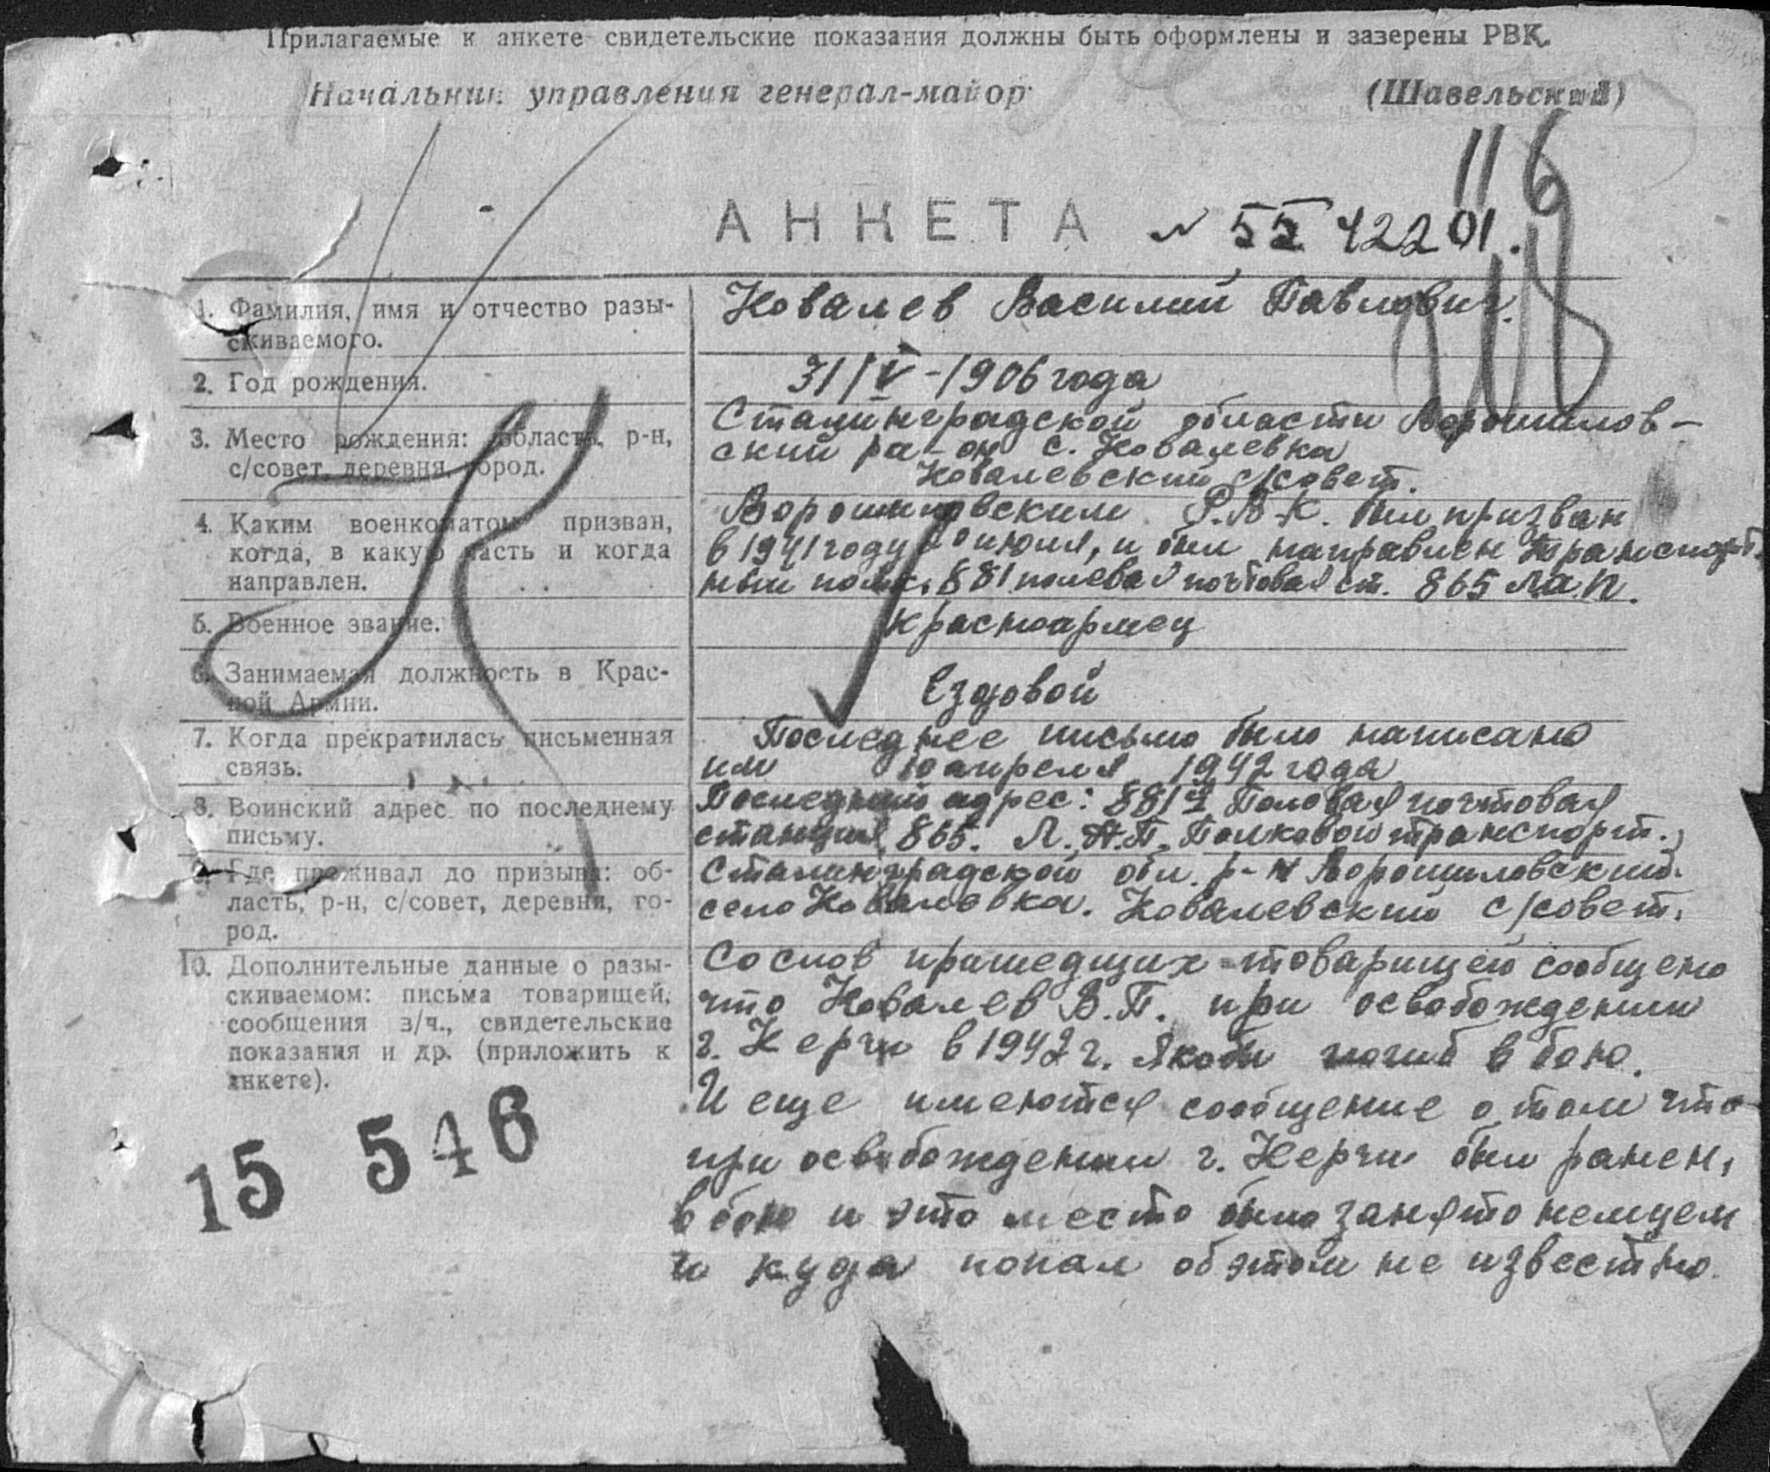 Прилагаемые к анкете свидетельские показания должны быть оформлены и заверены РВК.
Начальник управления генерал-майор (Шавельский)
116
АНКЕТА № 55 42201.
1. Фамилия, имя и отчество разыскиваемого.
Ковалев Василий Павлович.
2. Год рождения.
31/V-1906 года
3. Место рождения: область, р-н,
с/совет, деревня, город.
Сталинградской области Ворошилов-
ский ра-он с. Ковалевка
Ковалевский с/совет.
4. Каким военкоматом призван,
когда, в какую часть и когда
направлен.
Ворошиловским Р.В.К. был призван
в 1941 году июля, и был направлен транспорт-
ный полк, 881 полевая почтовая ст. 865 ла.п.
5. Военное звание.
Красноармец
6. Занимаемая должность в Крас-
ной Армии.
Ездовой
7. Когда прекратилась письменная
связь.
Последнее письмо было написано
им 10 апреля 1942 года
8. Воинский адрес по последнему
письму.
Последний адрес: 881я Половая почтовая
станция, 865. Л.А.П. Полковой транспорт.
9. Где проживал до призыва: об-
ласть, р-н, с/совет, деревня, го-
род.
Сталинградской обл. р-н Ворошиловский.
село Ковалевка. Ковалевский с/совет.
10. Дополнительные данные о разы-
скиваемом: письма товарищей,
сообщения в/ч., свидетельские
показания и др. (приложить к
анкете).
Со слов пришедших товарищей сообщено
что Ковалев В.П. при освобождении
г. Керчи в 1942 г. якобы погиб в бою.
И еще имеются сообщение о том что
при освобождении г. Керчи был ранен,
в бою и это место было занято немцем
и куда попал об этом не известно.
15 546